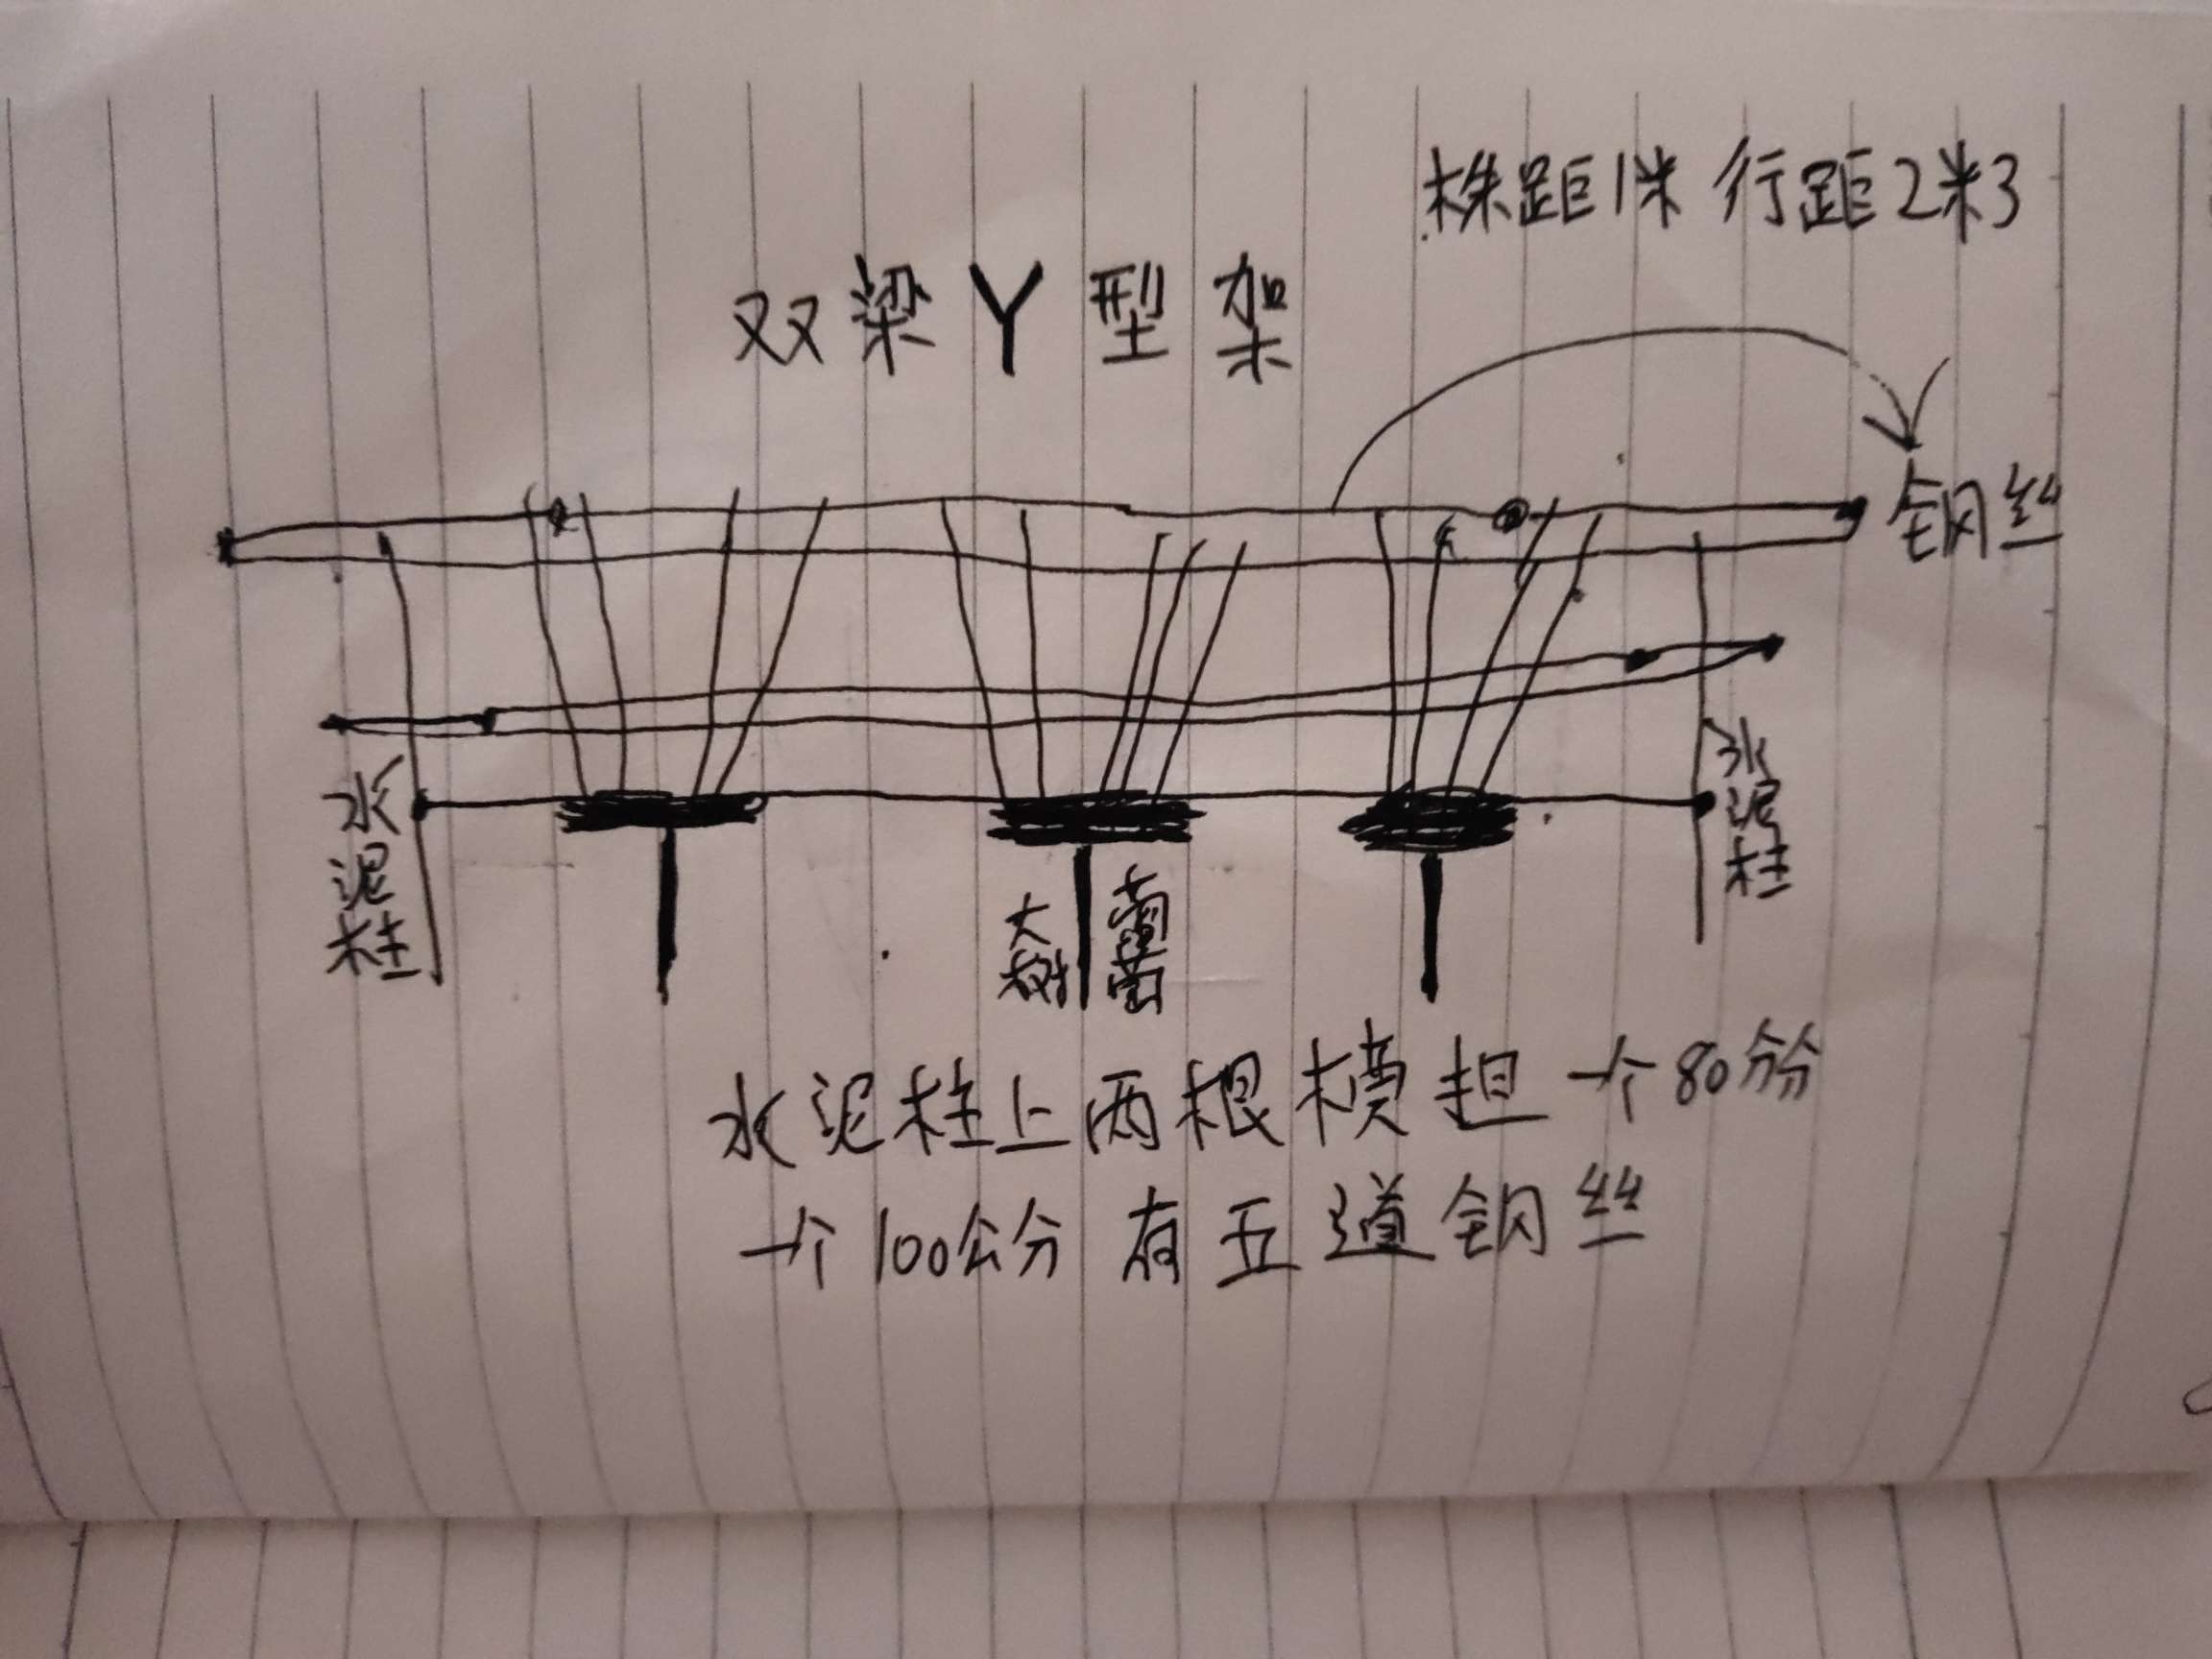 株距1米 行距2米3
双梁Y型架
钢丝
水泥柱
水泥柱
大树
葡萄
水泥柱上两根横担一个80公分
一个100公分 有五道钢丝